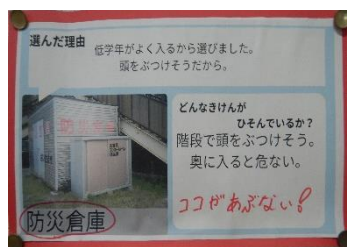 選んだ理由
低学年がよく入るから選びました。
頭をぶつけそうだから。
どんなきけんが
ひそんでいるか？
階段で頭をぶつけそう。
奥に入ると危ない。
ココがあぶない！
防災倉庫